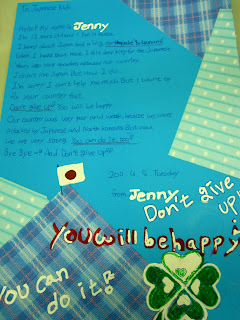 To Japanese Kids
Hello! My name is Jenny
I'm 13 years old and I live in Korea.
I heard about Japan had a big earthquake & tsunami
When I heard that news I also
Years ago your country
I didn't like Japan But now I do.
I'm sorry I can't help me much But I want to
for your country But
Don't give up! You will be happy
Our country was very poor and weak, because we were
attacked by Japanese and North Koreans But now,
we are very strong You can do it, too!
Bye Bye~!! And Don't Give Up!!
2011 4 Tuesday
from Jenny
Don't give up!
You will be happy!
You can
do it!